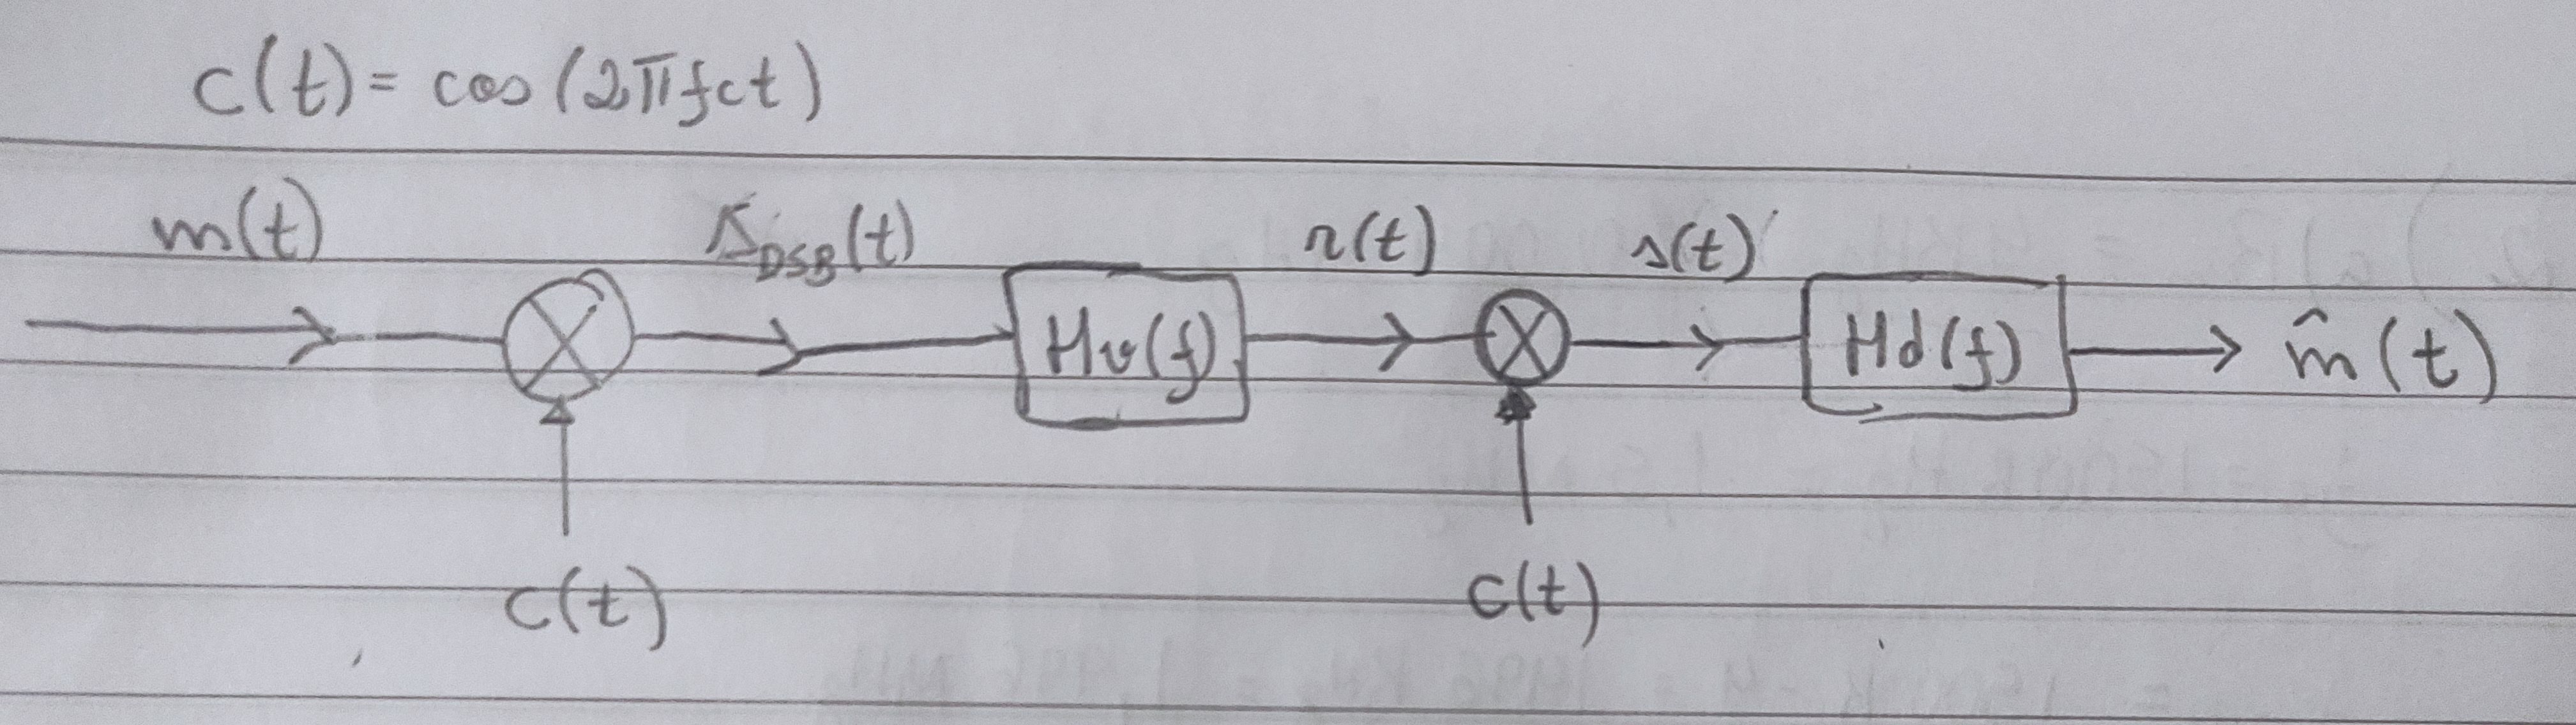 c(t) = cos (2πfct)
m(t) s_DSB(t) r(t) s(t)
Hv(f) Hd(f) m̂(t)
c(t) c(t)